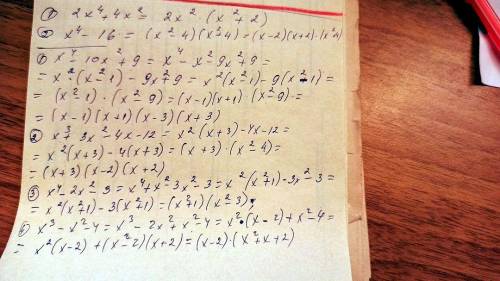 ① 2x⁴+4x² = 2x²·(x²+2)
② x⁴-16 = (x²-4)(x²+4)=(x-2)(x+2)·(x²+4)
① x⁴-10x²+9 = x⁴-x²-9x²+9 =
= x²(x²-1) - 9x²+9 = x²(x²-1)-9(x²-1) =
= (x²-1)·(x²-9)=(x-1)(x+1)·(x²-9) =
= (x-1)(x+1)(x-3)(x+3)
② x³+3x²-4x-12 = x²(x+3)-4x-12 =
= x²(x+3)-4(x+3) = (x+3)·(x²-4) =
= (x+3)(x-2)(x+2)
③ x⁴-2x²-3 = x⁴+x²-3x²-3 = x²(x²+1)-3x²-3 =
= x²(x²+1)-3(x²+1)=(x²+1)(x²-3);
x³-x²-4 = x³-2x²+x²-4 = x²·(x-2)+x²-4 =
= x²(x-2)+(x-2)(x+2)=(x-2)·(x²+x+2)